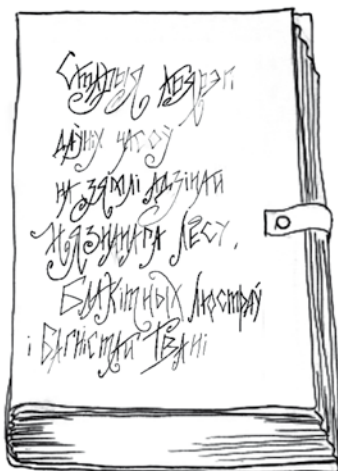 Старыя абярэгі
даўніх часоў
на зямлі адзінай
Нязнанага лёсу,
Блакітных люстраў
і Багністай Твані